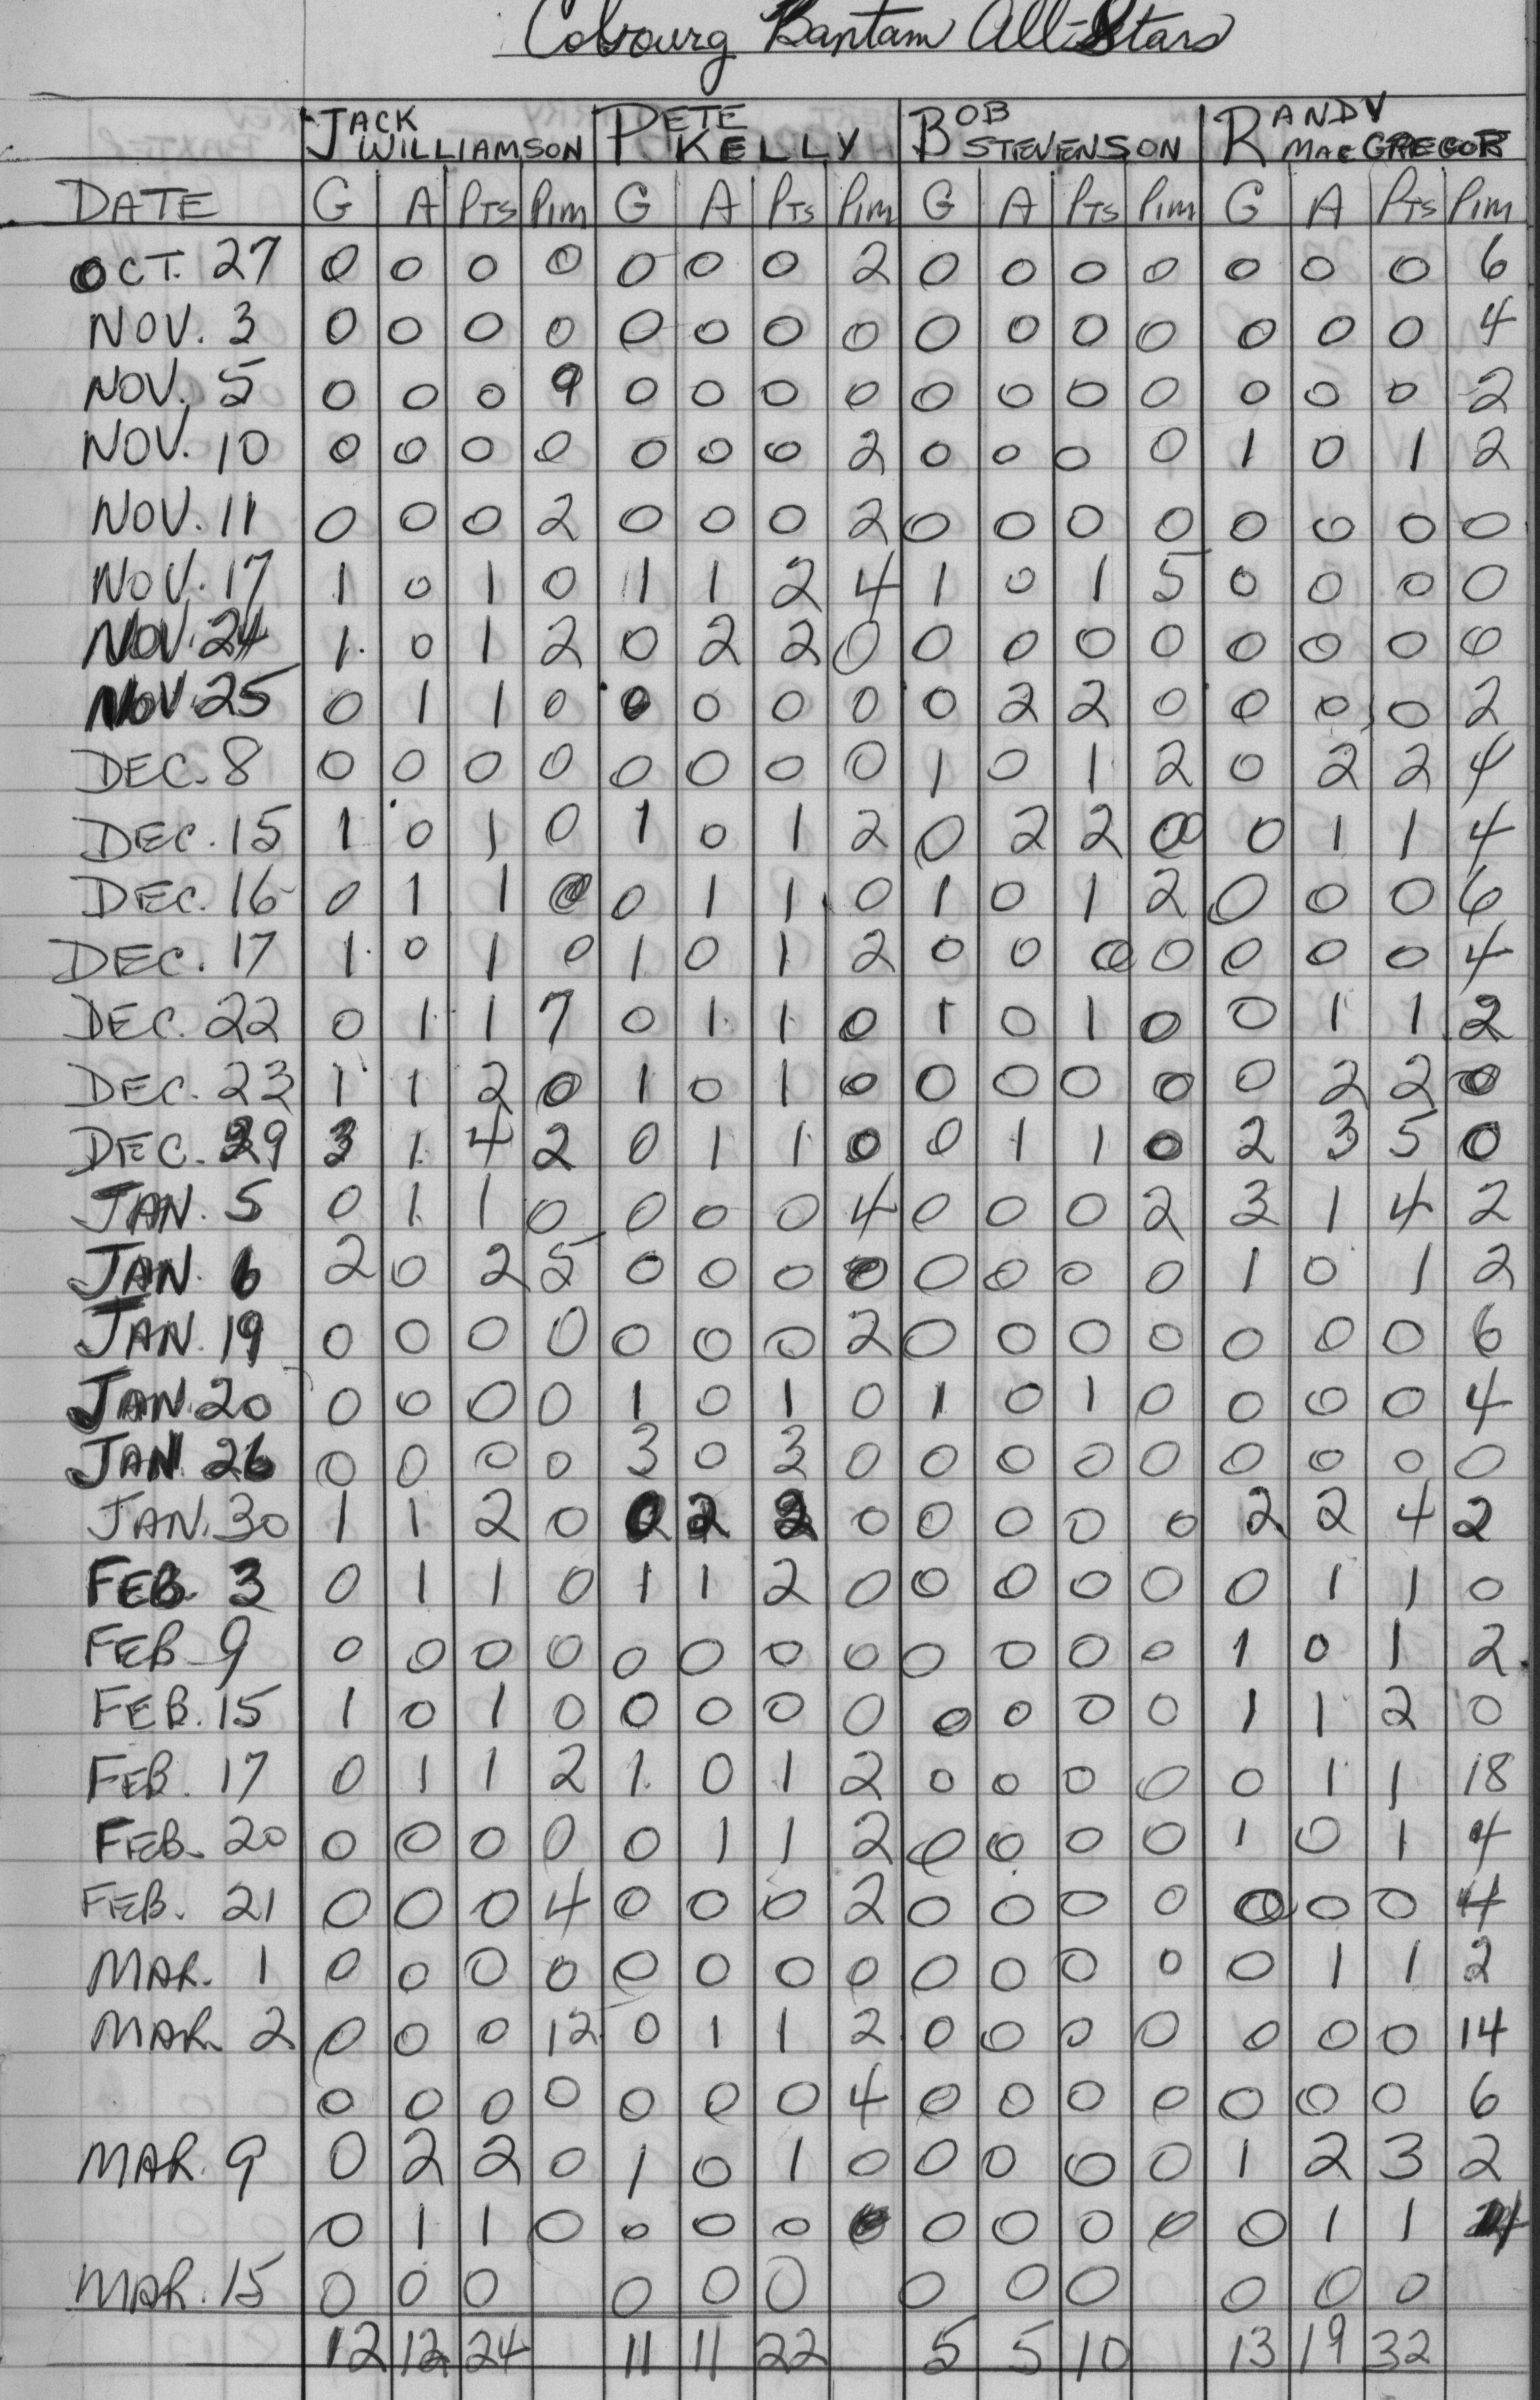 Cobourg Bantam All-Stars
JACK WILLIAMSON PETE KELLY BOB STEVENSON RANDY MACGREGOR
DATE G A PTS PIM G A PTS PIM G A PTS PIM G A PTS PIM
OCT. 27 0 0 0 0 0 0 0 2 0 0 0 0 0 0 0 6
NOV. 3 0 0 0 0 0 0 0 0 0 0 0 0 0 0 0 4
NOV. 5 0 0 0 9 0 0 0 0 0 0 0 0 0 0 0 2
NOV. 10 0 0 0 0 0 0 0 2 0 0 0 0 1 0 1 2
NOV. 11 0 0 0 2 0 0 0 2 0 0 0 0 0 0 0 0
NOV. 17 1 0 1 0 1 1 2 4 1 0 1 5 0 0 0 0
NOV. 24 1 0 1 2 0 2 2 0 0 0 0 0 0 0 0 0
NOV. 25 0 1 1 0 0 0 0 0 0 2 2 0 0 0 0 2
DEC. 8 0 0 0 0 0 0 0 0 1 0 1 2 0 2 2 4
DEC. 15 1 0 1 0 1 0 1 2 0 2 2 0 0 1 1 4
DEC. 16 0 1 1 0 0 1 1 0 1 0 1 2 0 0 0 6
DEC. 17 1 0 1 0 1 0 1 2 0 0 0 0 0 0 0 4
DEC. 22 0 1 1 7 0 1 1 0 1 0 1 0 0 1 1 2
DEC. 23 1 1 2 0 1 0 1 0 0 0 0 0 0 2 2 0
DEC. 29 3 1 4 2 0 1 1 0 0 1 1 0 2 3 5 0
JAN. 5 0 1 1 0 0 0 0 4 0 0 0 2 3 1 4 2
JAN. 6 2 0 2 5 0 0 0 0 0 0 0 0 1 0 1 2
JAN. 19 0 0 0 0 0 0 0 2 0 0 0 0 0 0 0 6
JAN. 20 0 0 0 0 1 0 1 0 1 0 1 0 0 0 0 4
JAN 26 0 0 0 0 3 0 3 0 0 0 0 0 0 0 0 0
JAN. 30 1 1 2 0 0 2 2 0 0 0 0 0 2 2 4 2
FEB. 3 0 1 1 0 1 1 2 0 0 0 0 0 0 1 1 0
FEB 9 0 0 0 0 0 0 0 0 0 0 0 0 1 0 1 2
FEB. 15 1 0 1 0 0 0 0 0 0 0 0 0 1 1 2 0
FEB. 17 0 1 1 2 1 0 1 2 0 0 0 0 0 1 1 18
FEB. 20 0 0 0 0 0 1 1 2 0 0 0 0 1 0 1 4
FEB. 21 0 0 0 4 0 0 0 2 0 0 0 0 0 0 0 4
MAR. 1 0 0 0 0 0 0 0 0 0 0 0 0 0 1 1 2
MAR. 2 0 0 0 12 0 1 1 2 0 0 0 0 0 0 0 14
0 0 0 0 0 0 0 4 0 0 0 0 0 0 0 6
MAR. 9 0 2 2 0 1 0 1 0 0 0 0 0 1 2 3 2
0 1 1 0 0 0 0 0 0 0 0 0 0 1 1
MAR. 15 0 0 0 0 0 0 0 0 0 0 0 0
12 12 24 11 11 22 5 5 10 13 19 32